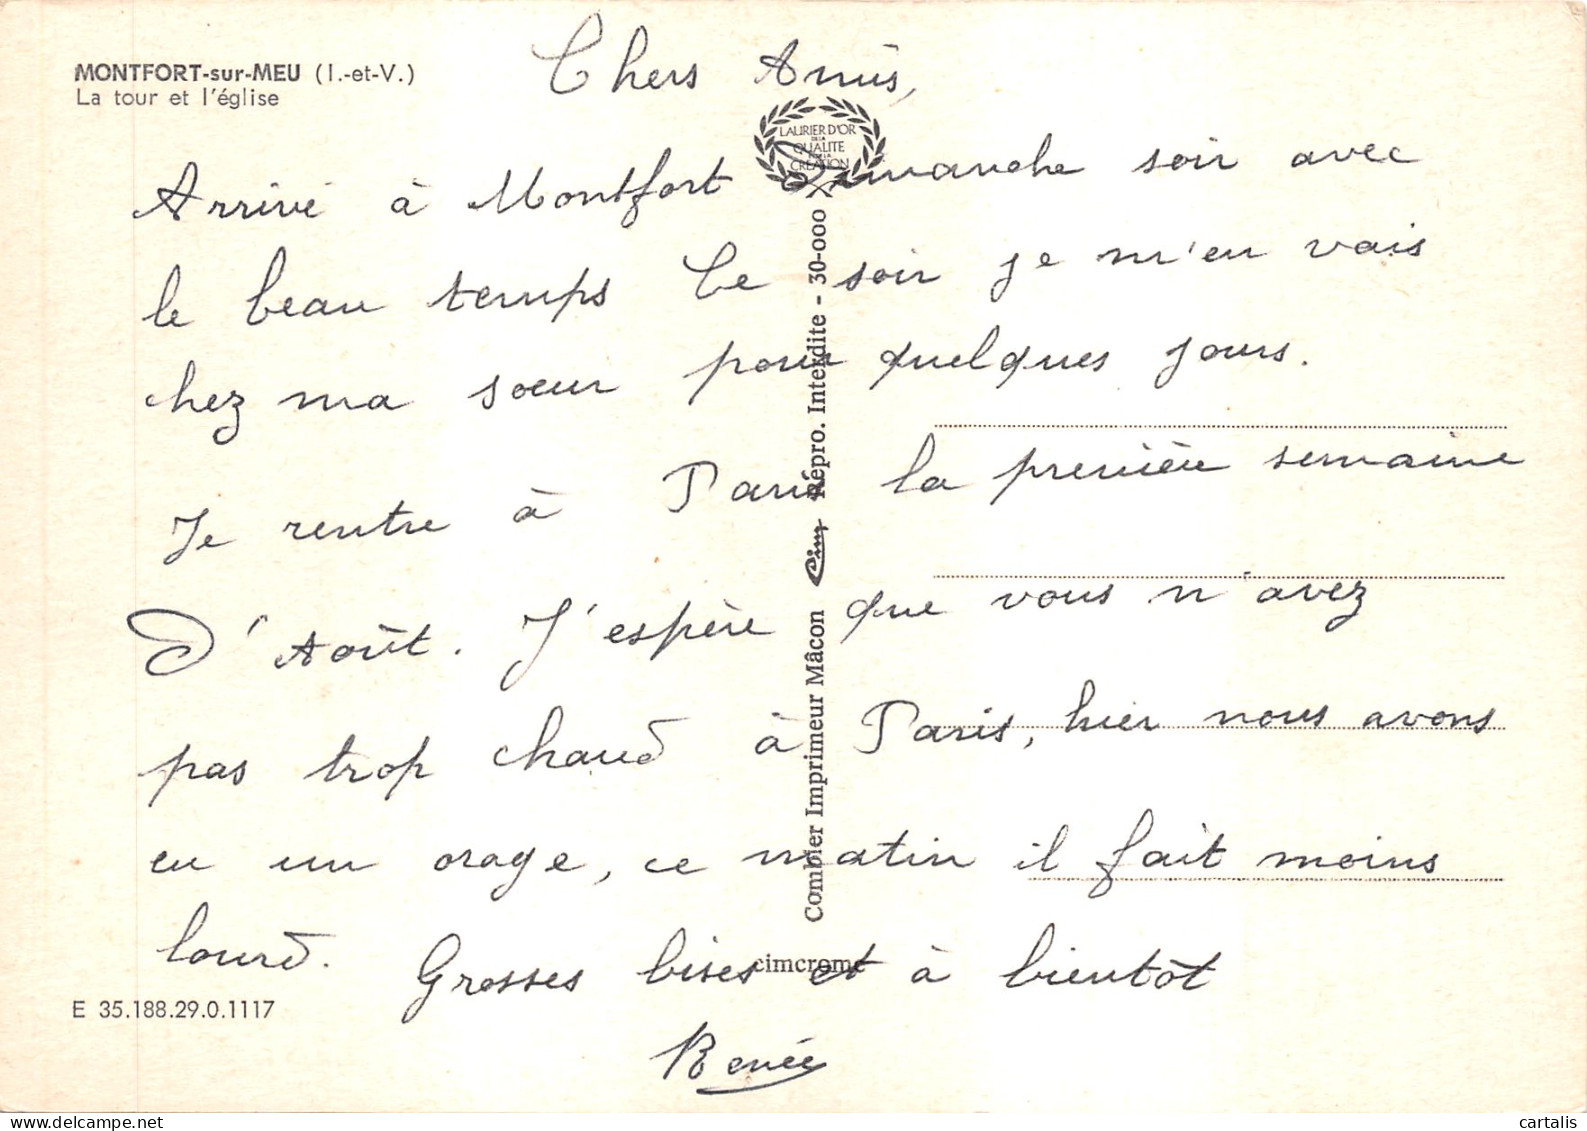 MONTFORT-sur-MEU (I.-et-V.)
La tour et l'église
Chers Amis,
LAURIER D'OR
DE LA
QUALITE
POUR LA
CREATION
Arrivé à Montfort Dimanche soir avec
le beau temps Ce soir je m'en vais
chez ma soeur pour quelques jours.
Je rentre à Paris la première semaine
D'Août. J'espère que vous n'avez
pas trop chaud à Paris, hier nous avons
eu un orage, ce matin il fait moins
lourd. Grosses bises et à bientôt
Renée
Combier Imprimeur Mâcon Cim Répro. Interdite - 30-000
cimcrome
E 35.188.29.0.1117
cartalis
delcampe.net